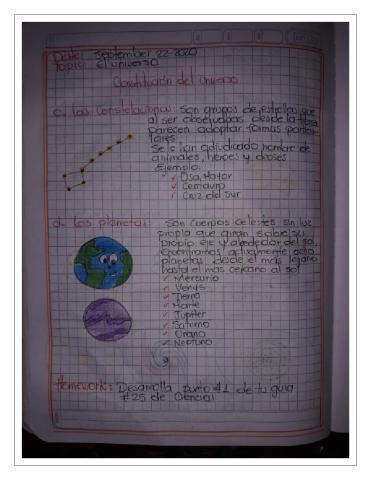 Date: September 22-2020
Topic: El universo
Constitución del Universo
c. las constelaciones: Son grupos de estrellas que
al ser observadas desde la tierra
parecen adoptar formas particu
lares.
Se le han adjudicado nombre de
animales, héroes y dioses
Ejemplo:
✓ Osa Mayor
✓ Centauro
✓ Cruz del Sur
d. Los planetas: Son cuerpos celestes sin luz
propia que giran sobre su
propio eje y alrededor del sol,
encontramos actualmente ocho
planetas desde el más lejano
hasta el más cercano al sol
✓ Mercurio
✓ Venus
✓ Tierra
✓ Marte
✓ Jupiter
✓ Saturno
✓ Urano
✓ Neptuno
Homework: Desarrolla punto #1 de tu guia
#25 de Ciencias